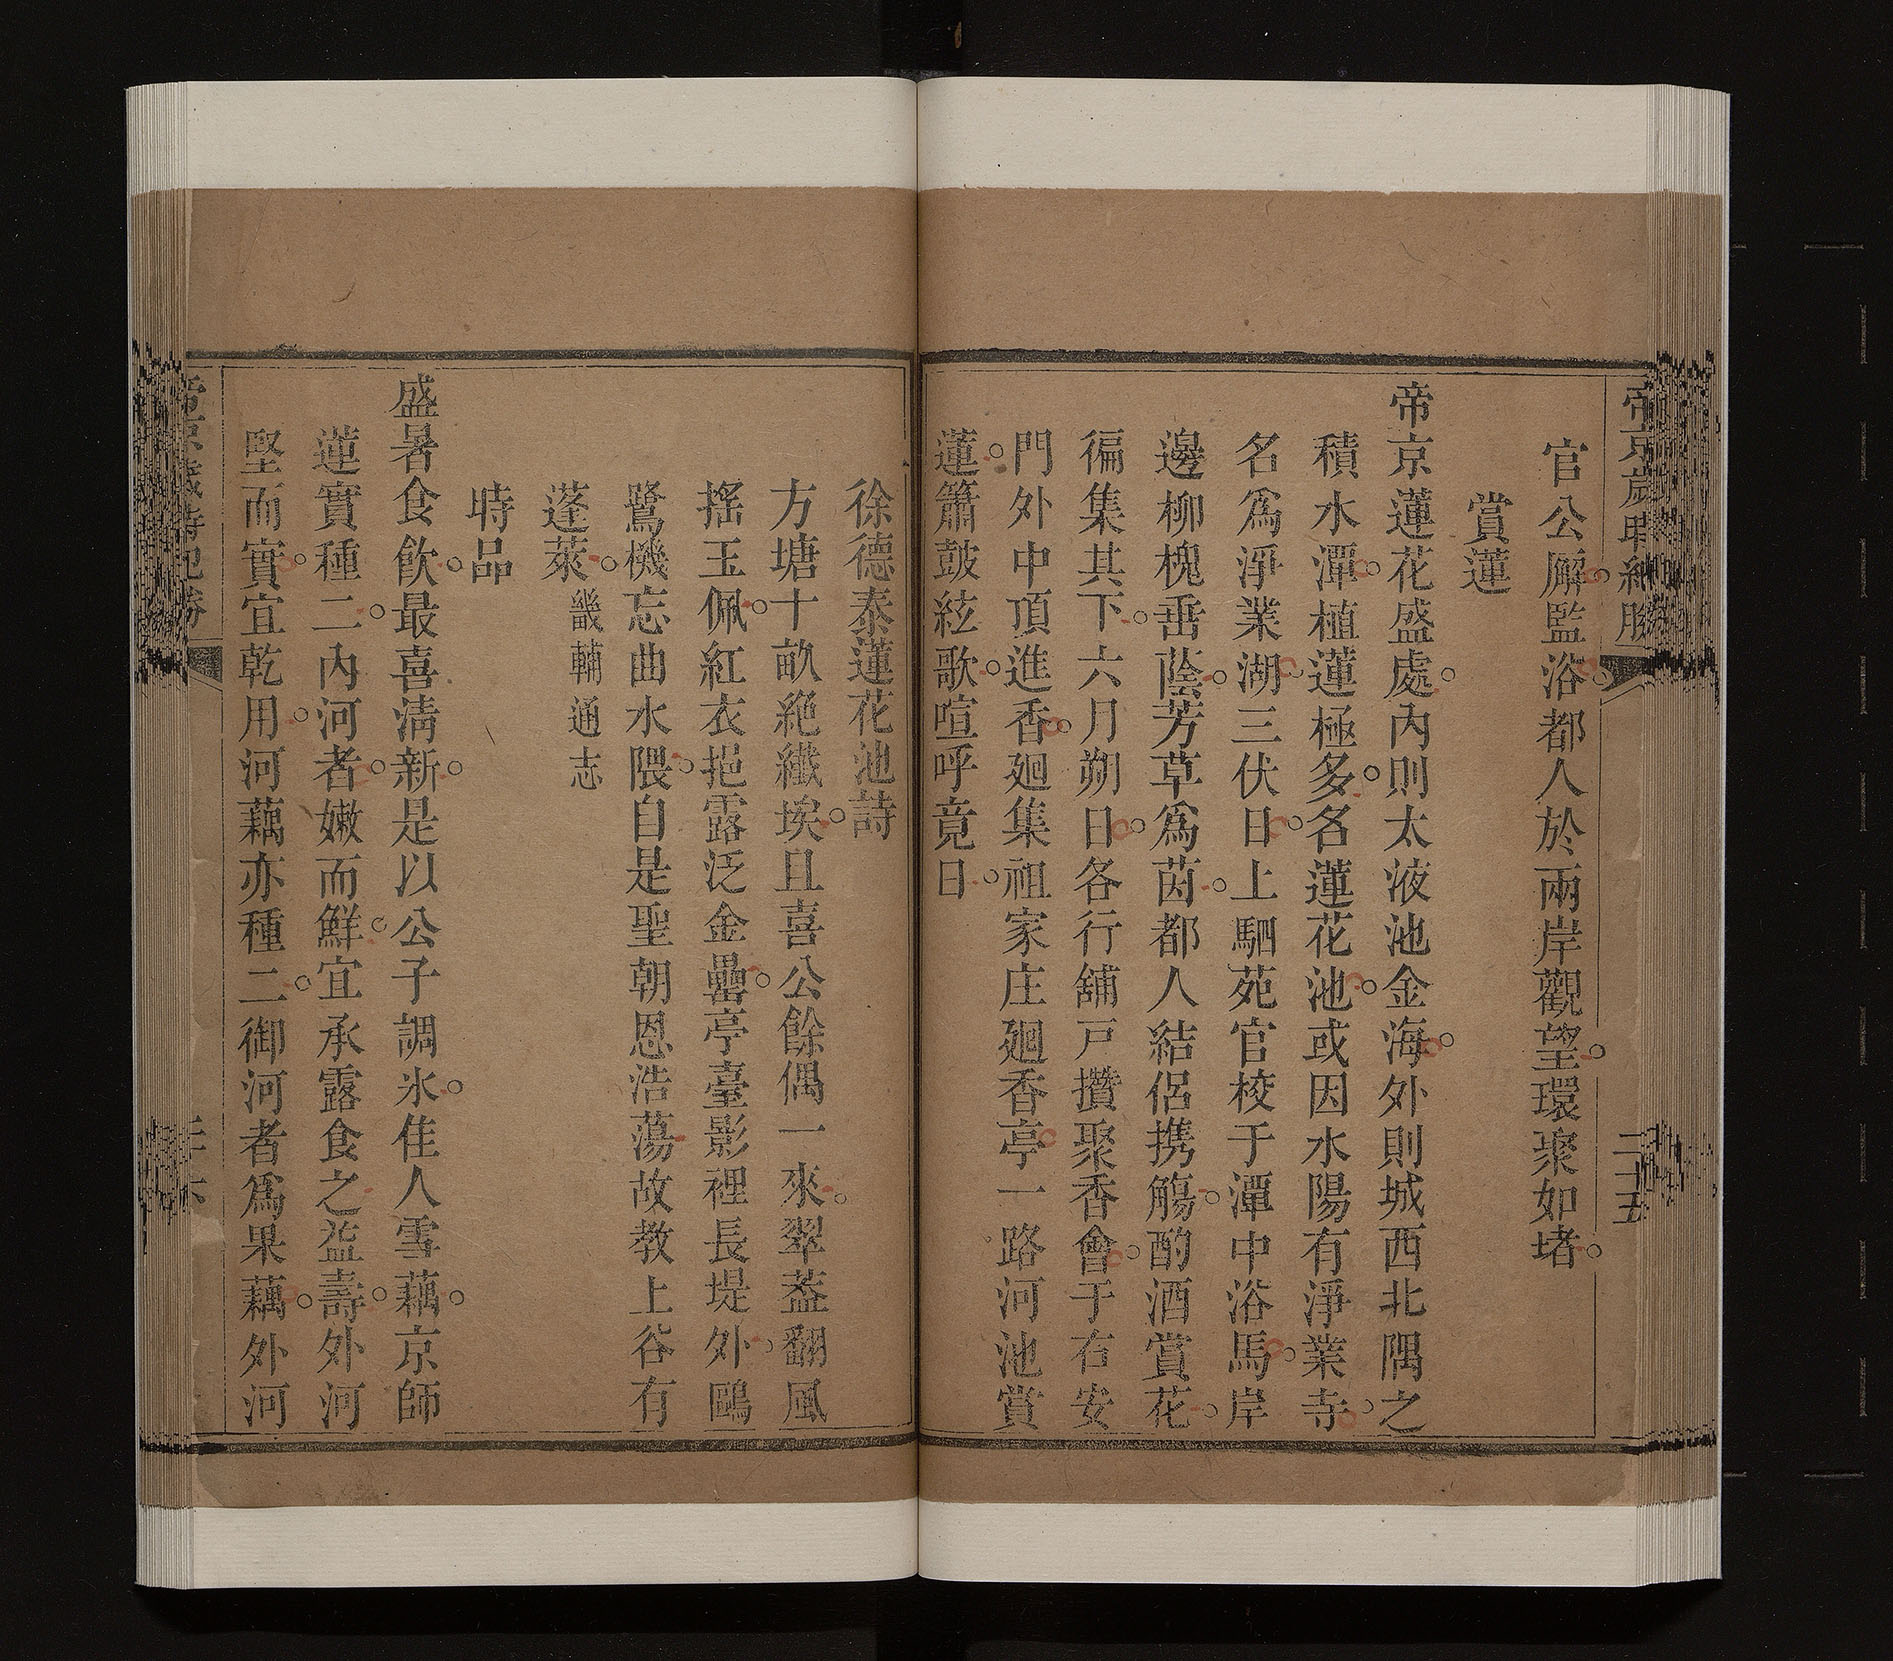 帝京歲時紀勝
二十五
官公廨監浴都人於兩岸觀望環聚如堵
賞蓮
帝京蓮花盛處內則太液池金海外則城西北隅之
積水潭植蓮極多名蓮花池或因水陽有淨業寺
名爲淨業湖三伏日上駟苑官校于潭中浴馬岸
邊柳槐垂蔭芳草爲茵都人結侶携觴酌酒賞花
徧集其下六月朔日各行舖戸攢聚香會于右安
門外中頂進香廻集祖家庄廻香亭一路河池賞
蓮簫鼓絃歌喧呼竟日
徐德泰蓮花池詩
方塘十畝絶纖埃且喜公餘偶一來翠葢翻風
搖玉佩紅衣挹露泛金罍亭臺影裡長堤外鷗
鷺機忘曲水隈自是聖朝恩浩蕩故教上谷有
蓬萊畿輔通志
時品
盛暑食飲最喜淸新是以公子調氷佳人雪藕京師
蓮實種二內河者嫩而鮮宜承露食之益壽外河
堅而實宜乾用河藕亦種二御河者爲果藕外河
帝京歲時紀勝